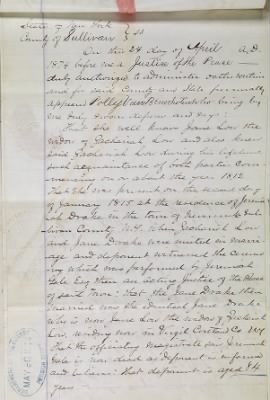 State of New York
County of Sullivan } SS
On this 24 day of April A.D.
1874 before me a Justice of the Peace
duly authorized to administer oaths within
and for said County and State personally
appeared Polly who being by
me duly sworn deposes and says:
That she well knows Jane Low the
widow of Zachariah Low and also knew
said Zachariah Low during his lifetime
such acquaintance of both parties com
mencing on or about the year 1812
That she was present on the second day
of January 1815 at the residence of Jeremi
ah Drake in the town of Sul
livan County N.Y. when Zachariah Low
and Jane Drake were united in marri
age and deponent witnessed the cerem
ony which was performed by Jeremiah
Gale Esq then an acting Justice of the Peace
of said Town; that the Jane Drake then
married was the identical Jane Drake
who is now Jane Low the widow of Zachariah
Low, residing now in Virgil Cortland Co NY
That the officiating magistrate said Jeremiah
Gale is now dead as deponent is informed
and believes: that deponent is aged 74
years